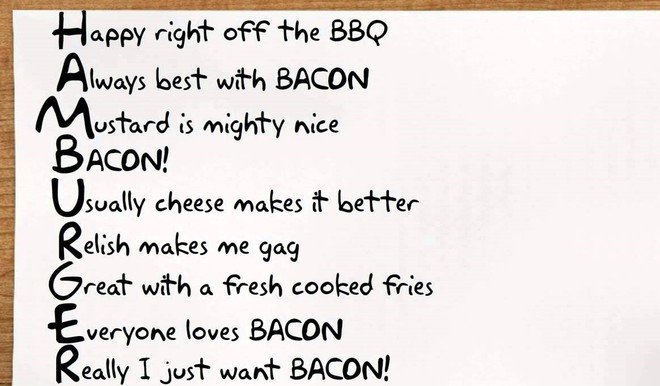 Happy right off the BBQ
Always best with BACON
Mustard is mighty nice
BACON!
Usually cheese makes it better
Relish makes me gag
Great with a fresh cooked fries
Everyone loves BACON
Really I just want BACON!